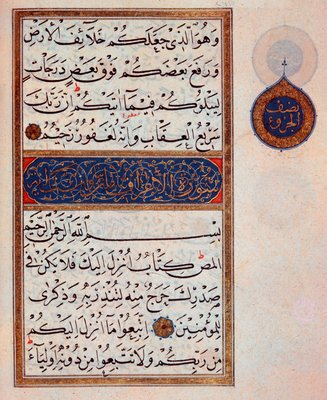 وهو الذي جعلكم خلائف الأرض
ورفع بعضكم فوق بعض درجات
ليبلوكم فيما آتيكم إن ربك
سريع العقاب وإنه لغفور رحيم
سورة الأعراف مائتان وست آيات
بسم الله الرحمن الرحيم
المص كتاب أنزل إليك فلا يكن في
صدرك حرج منه لتنذر به وذكرى
للمؤمنين اتبعوا ما أنزل إليكم
من ربكم ولا تتبعوا من دونه أولياء
نصف
الجزو